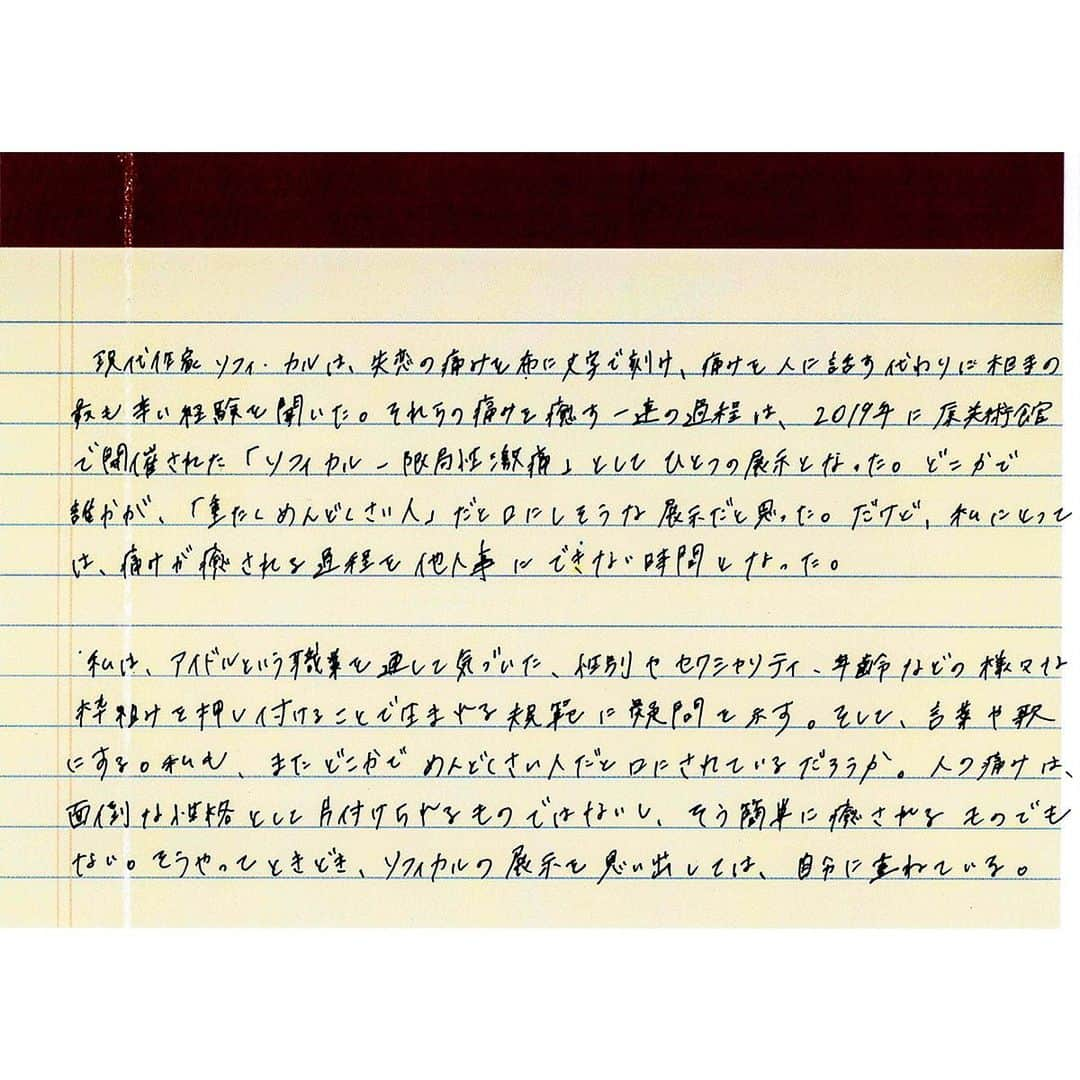 現代作家ソフィ・カルは、失恋の痛みを布に文字で刻み、痛みを人に話す代わりに相手の
最も辛い経験を聞いた。それらの痛みを癒す一連の過程は、2019年に原美術館
で開催された「ソフィカル ー 限局性激痛」としてひとつの展示となった。どこかで
誰かが、「重たくめんどくさい人」だと口にしそうな展示だと思った。だけど、私にとって
は、痛みが癒される過程を他人事にできない時間となった。
私は、アイドルという職業を通して気づいた、性別やセクシャリティ、年齢などの様々な
枠組みを押し付けることで生まれる規範に疑問を示す。そして、言葉や歌
にする。私も、またどこかでめんどくさい人だと口にされているだろうか。人の痛みは、
面倒な性格として片付けられるものではないし、そう簡単に癒されるものでも
ない。そうやってときどき、ソフィカルの展示を思い出しては、自分に重ねている。